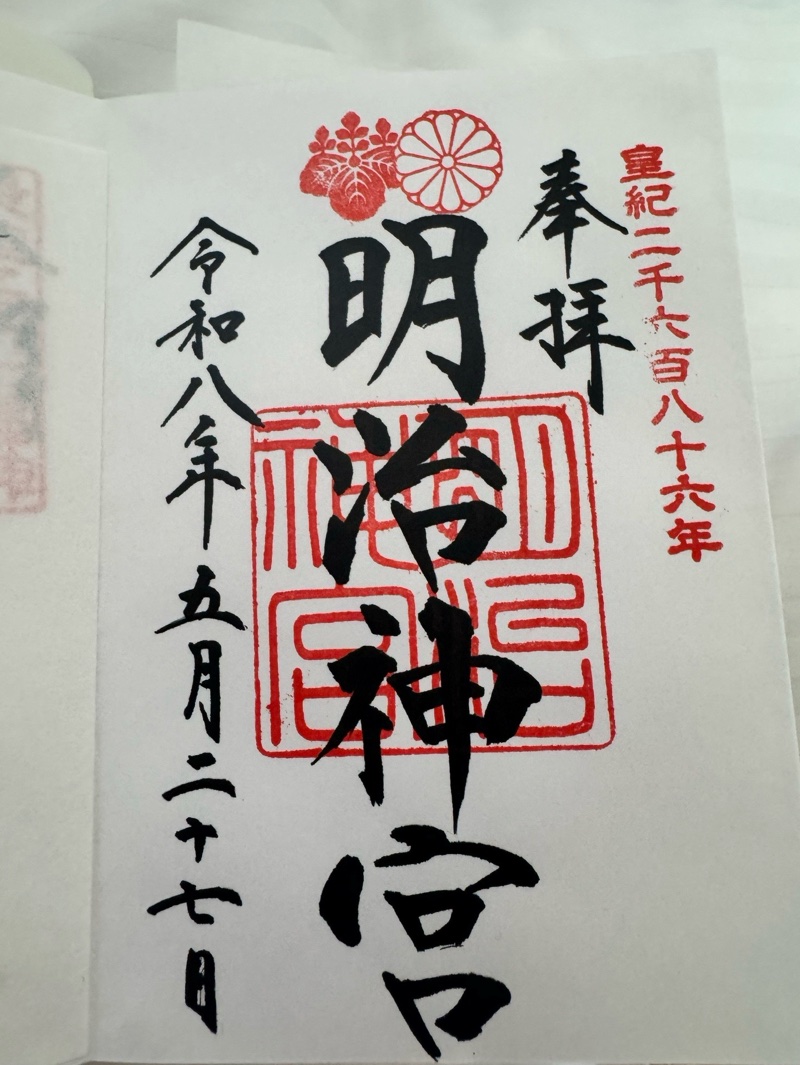 皇紀二千六百八十六年
奉拝
明治神宮
明治神宮
令和八年五月二十七日